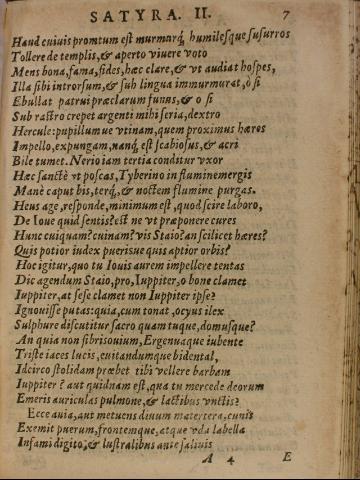 SATYRA. II. 7
Haud cuiuis promtum est murmurq́; humilesque susurros
Tollere de templis, & aperto viuere voto
Mens bona, fama, fides, hæc clare, & vt audiat hospes,
Illa sibi introrsum, & sub lingua immurmurat, ò si
Ebullat patrui præclarum funus, & o si
Sub rastro crepet argenti mihi seria, dextro
Hercule: pupillumue vtinam, quem proximus hæres
Impello, expungam, nanq́; est scabiosus, & acri
Bile tumet. Nerio iam tertia conditur vxor
Hæc sanctè vt poscas, Tyberino in flumine mergis
Manè caput bis, terq́;, & noctem flumine purgas.
Heus age, responde, minimum est, quod scire laboro,
De Ioue quid sentis? est ne vt præponere cures
Hunc cuiquam? cuinam? vis Staio? an scilicet hæres?
Quis potior iudex puerisue quis aptior orbis?
Hoc igitur, quo tu Iouis aurem impellere tentas
Dic agendum Staio, pro, Iuppiter, o bone clamet
Iuppiter, at sese clamet non Iuppiter ipse?
Ignouisse putas: quia, cum tonat, ocyus ilex
Sulphure discutitur sacro quam tuque, domusque?
An quia non fibris ouium, Ergennaque iubente
Triste iaces lucis, euitandumque bidental,
Idcirco stolidam præbet tibi vellere barbam
Iuppiter? aut quidnam est, qua tu mercede deorum
Emeris auriculas pulmone, & lactibus vnctis?
Ecce auia, aut metuens diuum matertera, cunis
Exemit puerum, frontemque, atque vda labella
Infami digito, & lustralibus ante saliuis
A 4 E